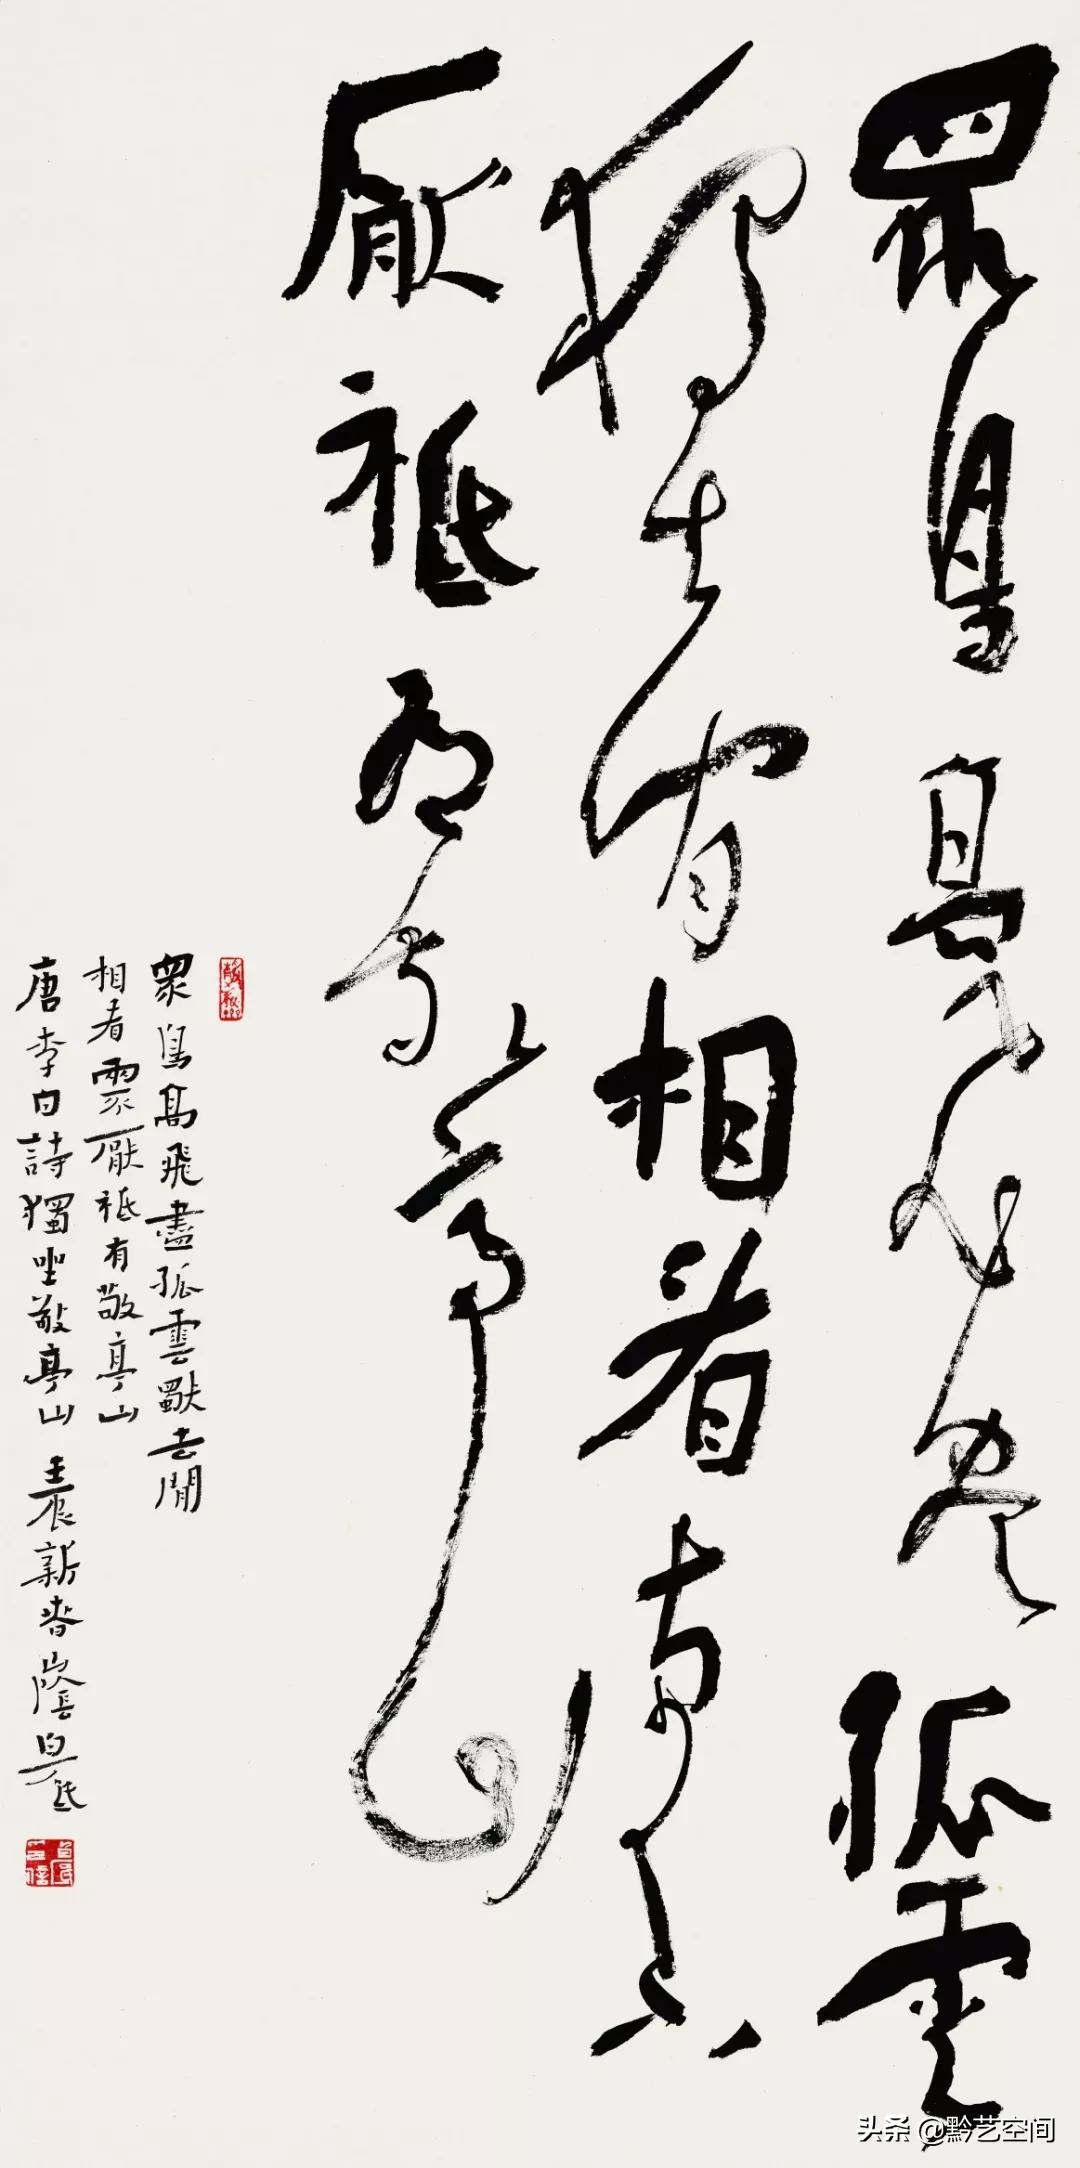 眾鳥高飛盡孤雲
獨去閒相看兩不
厭祇有敬亭山
眾鳥高飛盡孤雲獨去閒
相看兩不厭祇有敬亭山
唐李白詩獨坐敬亭山 壬辰新春
头条 @黔艺空间